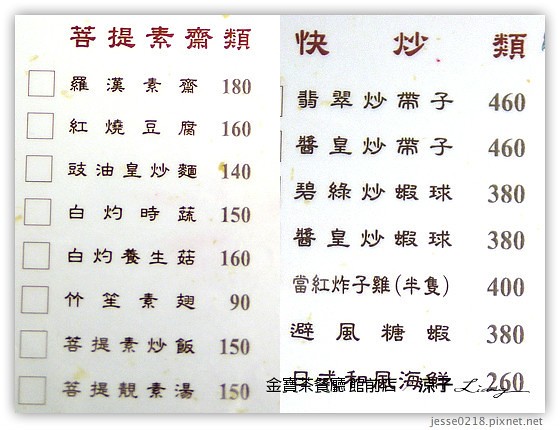 菩提素齋類
羅漢素齋 180
紅燒豆腐 160
豉油皇炒麵 140
白灼時蔬 150
白灼養生菇 160
竹笙素翅 90
菩提素炒飯 150
菩提靚素湯 150
快炒類
翡翠炒帶子 460
醬皇炒帶子 460
碧綠炒蝦球 380
醬皇炒蝦球 380
當紅炸子雞(半隻) 400
避風糖蝦 380
日式和風海鮮 260
金寶茶餐廳 館前店
涼子 Liang
jesse0218.pixnet.net